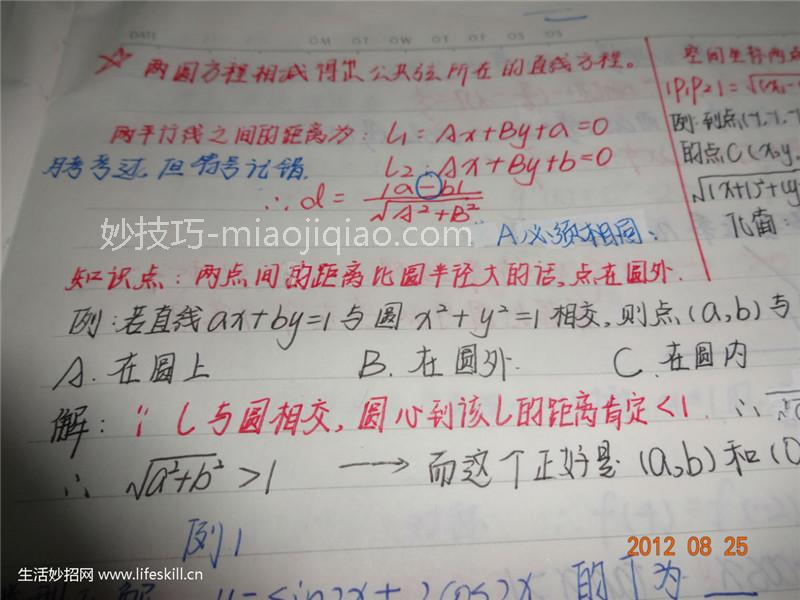 DATE
☆ 两圆方程相减得出公共弦所在的直线方程。
两平行线之间的距离为: L₁=Ax+By+a=0
月考考过,但符号记错. L₂:Ax+By+b=0
∴ d = |a-b| / √A²+B²
A必须相同.
知识点:两点间的距离比圆半径大的话,点在圆外.
例:若直线ax+by=1与圆x²+y²=1相交,则点(a,b)与
A.在圆上 B.在圆外. C.在圆内
解:∵L与圆相交,圆心到该L的距离肯定<1. ∴
∴ √a²+b² >1 → 而这个正好是(a,b)和(0
例1
y=sin2x+2cos2x的T为
空间坐标两点
|P₁P₂|=√(x₁-
例:到点(-1,-1,-
的点C(x,y,
√(x+1)²+(y
妙技巧-miaojiqiao.com
2012 08 25
生活妙招网 www.lifeskill.cn